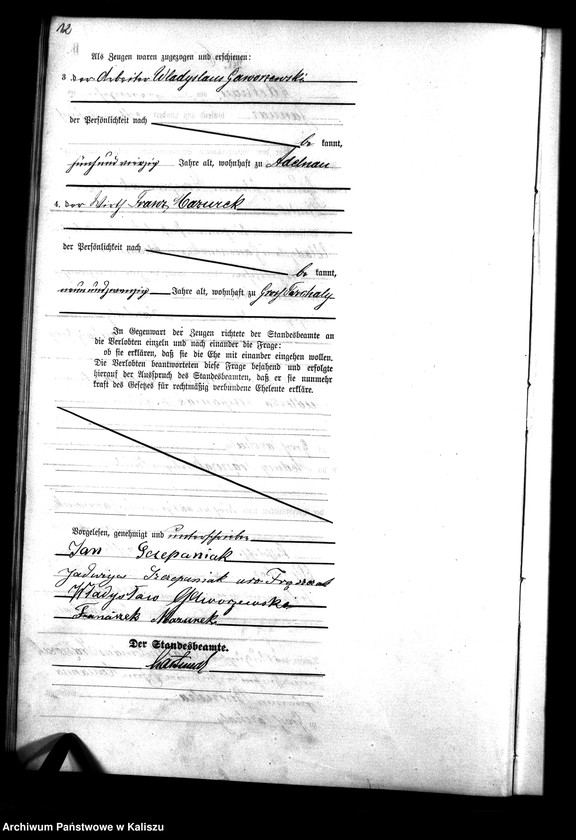 12
Als Zeugen waren zugezogen und erschienen:
3. der Arbeiter Wladyslaus Gaworzewski
der Persönlichkeit nach
be kannt,
fünfundvierzig Jahre alt, wohnhaft zu Adelnau
4. der Wirth Franz Mazurek
der Persönlichkeit nach
be kannt,
neunundzwanzig Jahre alt, wohnhaft zu Groß Tarchaly
In Gegenwart der Zeugen richtete der Standesbeamte an
die Verlobten einzeln und nach einander die Frage:
ob sie erklären, daß sie die Ehe mit einander eingehen wollen.
Die Verlobten beantworteten diese Frage bejahend und erfolgte
hierauf der Ausspruch des Standesbeamten, daß er sie nunmehr
kraft des Gesetzes für rechtmäßig verbundene Eheleute erkläre.
Vorgelesen, genehmigt und unterschrieben
Jan Szczepaniak
Jadwiga Szczepaniak
Władysław Gaworzewski
Franciszek Mazurek
Der Standesbeamte.
Archiwum Państwowe w Kaliszu